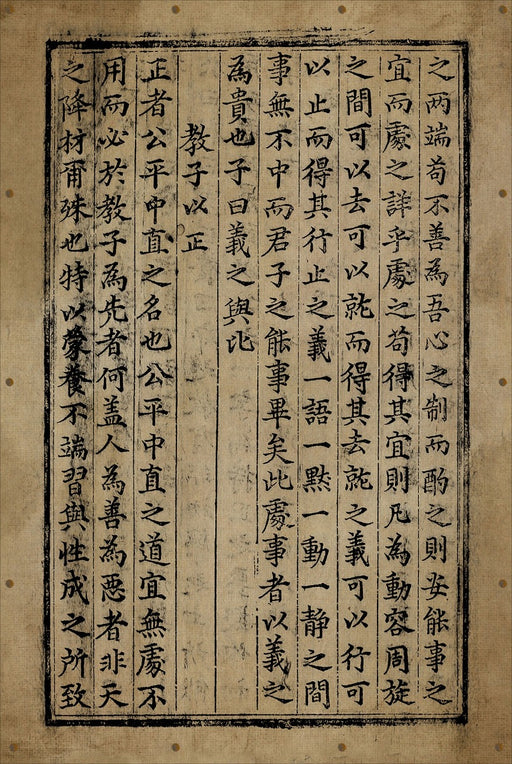 之两端苟不善為吾心之制而酌之則安能事之
宜而處之詳乎處之苟得其宜則凡為動容周旋
之間可以去可以就而得其去就之義可以行可
以止而得其行止之義一語一黙一動一静之間
事無不中而君子之能事畢矣此處事者以義之
為貴也子曰義之與比
教子以正
正者公平中直之名也公平中直之道宜無處不
用而必於教子為先者何盖人為善為惡者非天
之降材甭殊也特以蒙養不端習與性成之所致